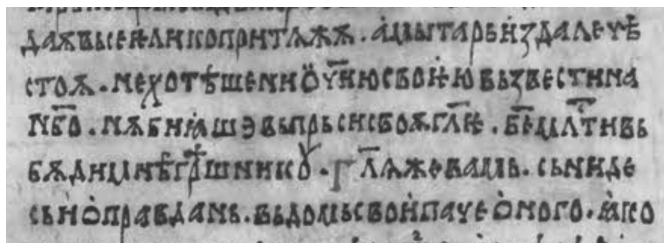 даѫ въсе ѥлико притѧжѫ · а мытарь издалече
стоѧ · не хотѣше ни ѹ҃ню своѥю възвести на
нб҃о · нѫ биꙗше въ прьси своѧ гл҃ѧ · б҃е млⷭ҇тивь
бѫди мнѣ грⷣшникꙋ · гл҃ѧ же вамь · сьниде
сь ѡправдань · вь домь свои паче ѡного · ꙗко